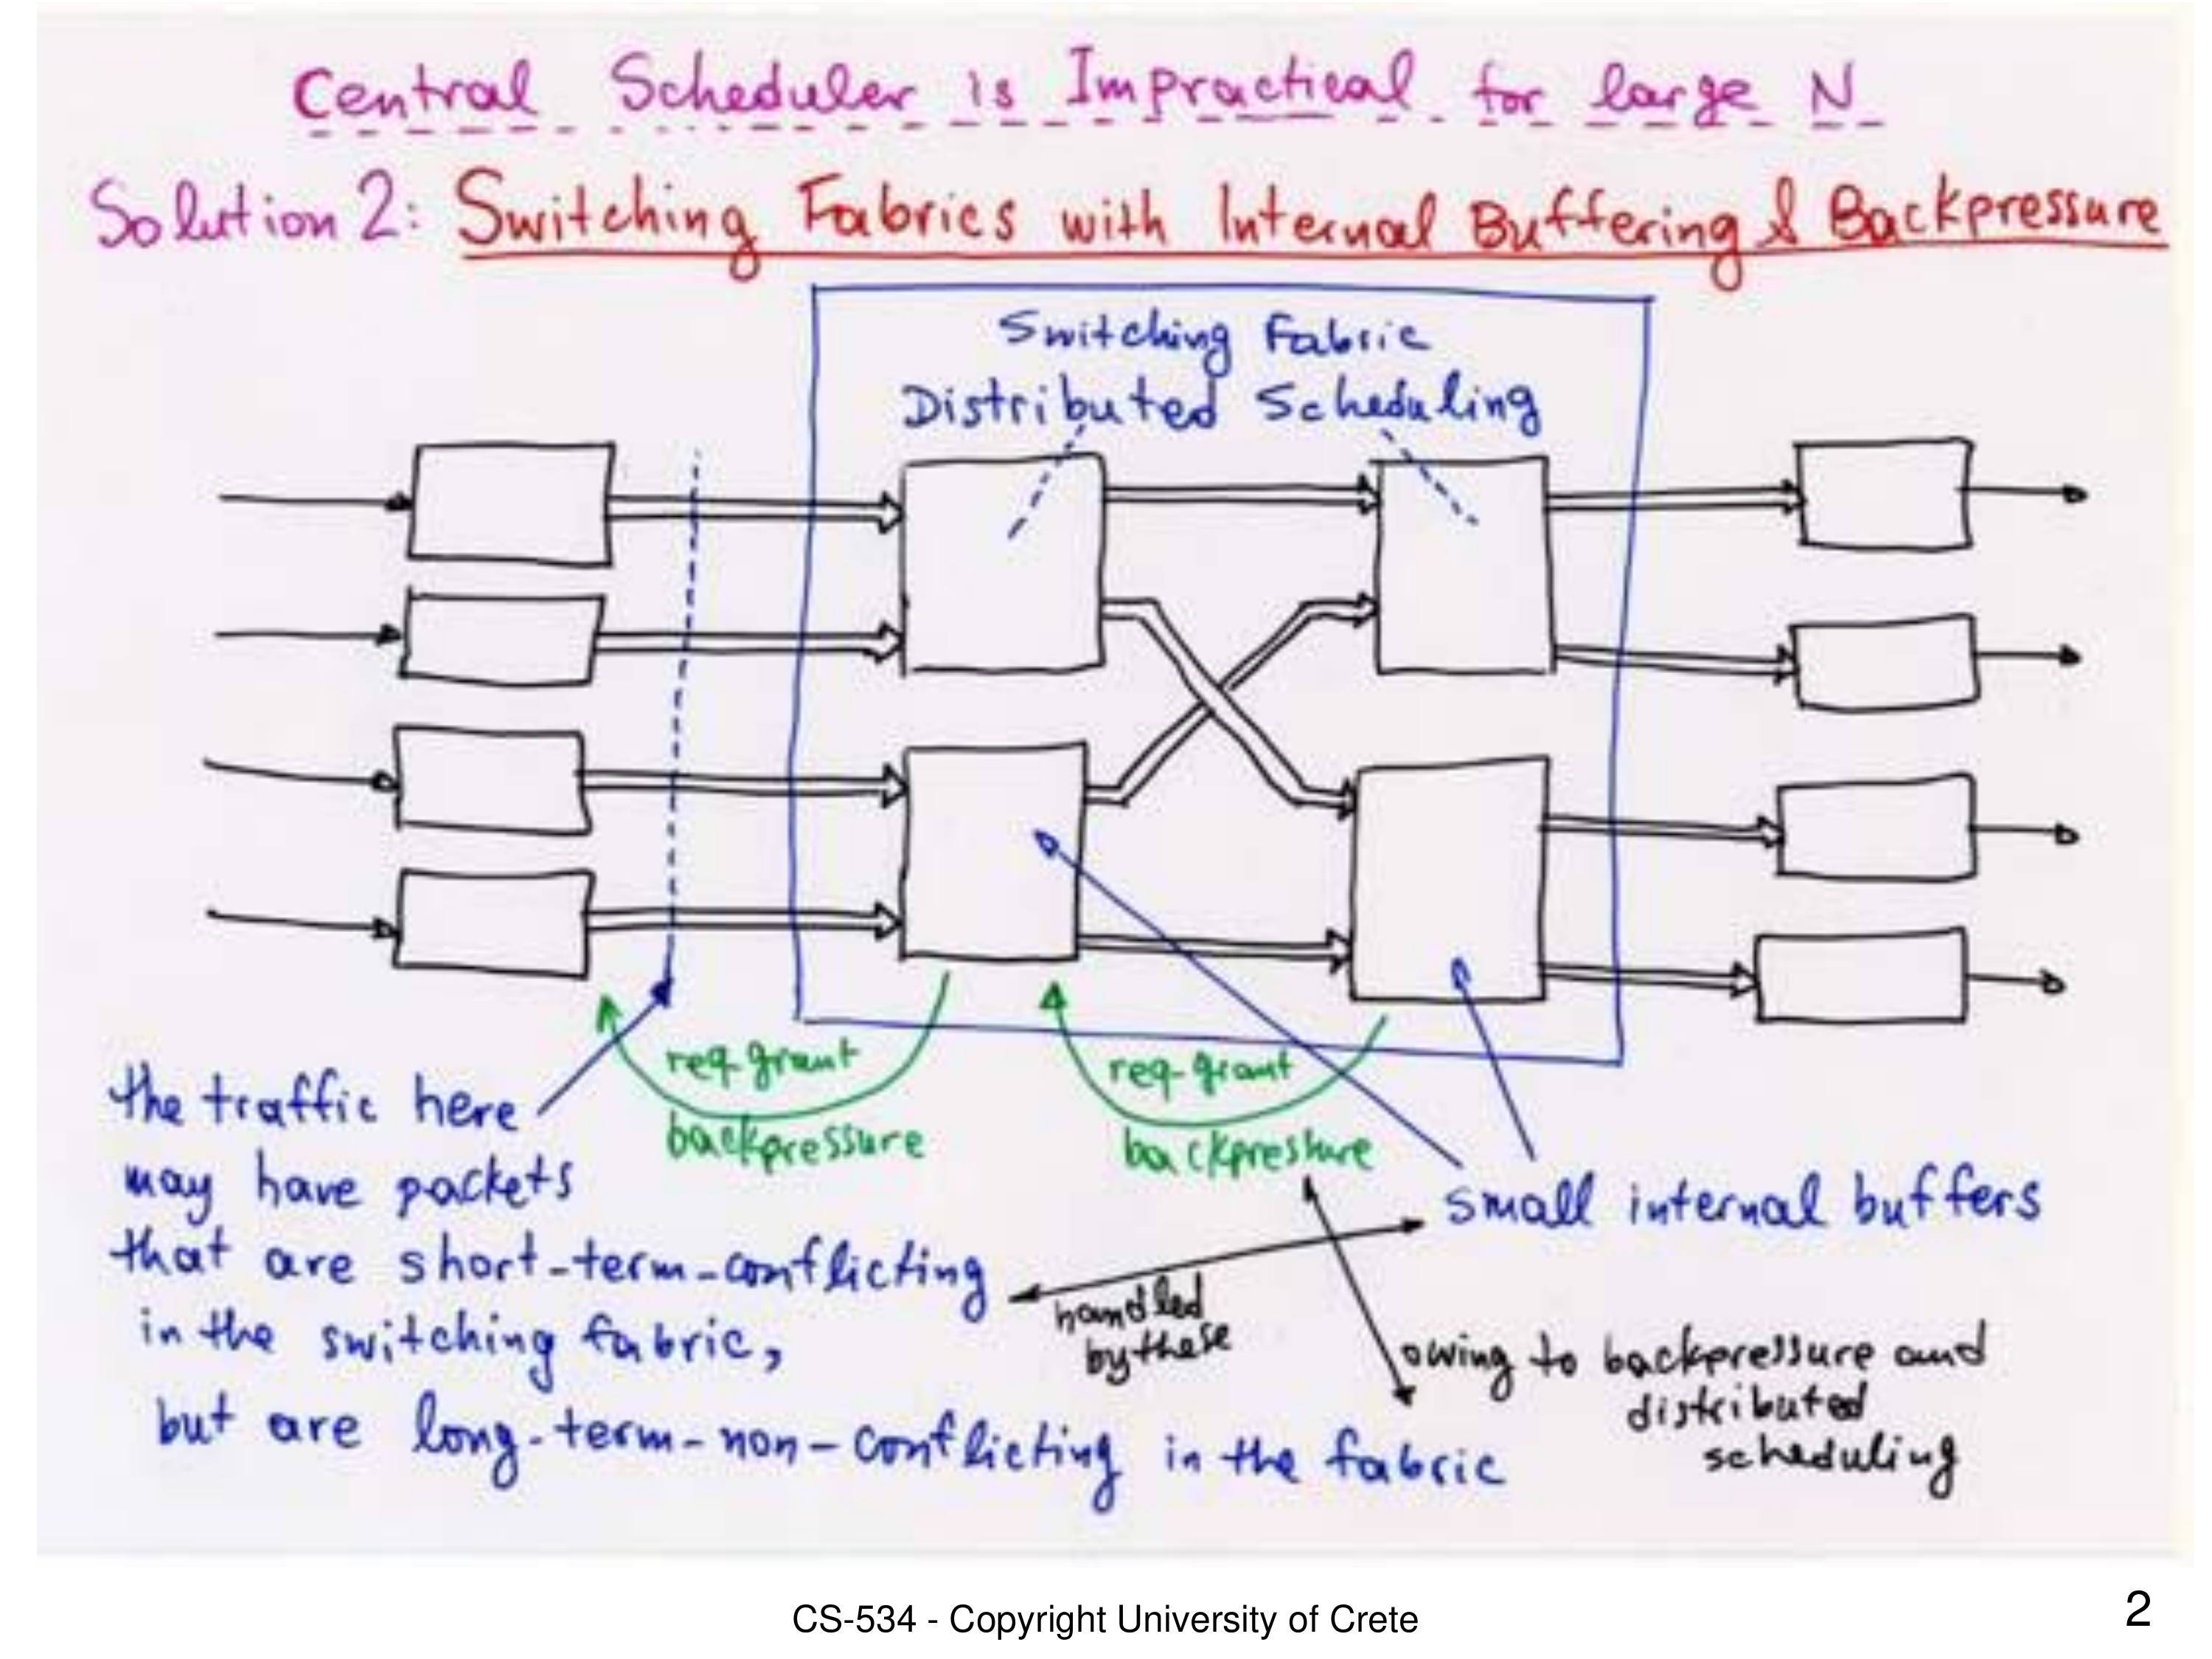 Central Scheduler is Impractical for large N
Solution 2: Switching Fabrics with Internal Buffering & Backpressure
Switching Fabric
Distributed Scheduling
req-grant
backpressure
req-grant
backpressure
the traffic here
may have packets
that are short-term-conflicting
in the switching fabric,
but are long-term-non-conflicting in the fabric
small internal buffers
handled
by these
owing to backpressure and
distributed
scheduling
CS-534 - Copyright University of Crete
2